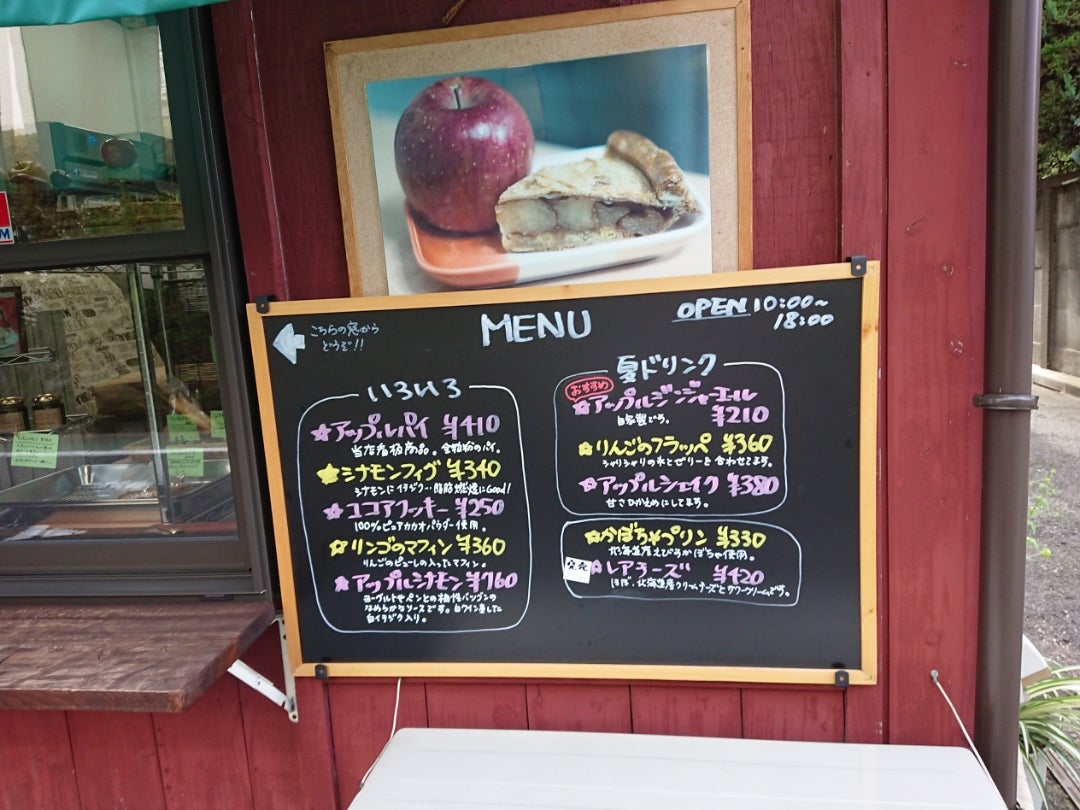 こちらの窓から
どうぞ!!
MENU
OPEN 10:00~
18:00
いろいろ
アップルパイ ¥410
当店看板商品。全粒粉のパイ。
シナモンフィグ ¥340
シナモンにイチジク…脂肪燃焼にGood!
ココアクッキー ¥250
100%ピュアカカオパウダー使用。
リンゴのマフィン ¥360
りんごのピューレの入ったマフィン。
アップルシナモン ¥760
ヨーグルトやパンとの相性バツグンの
なめらかなソースです。白ワイン蒸した
白イチジク入り。
夏ドリンク
おすすめ
アップルジンジャーエール
¥210
自家製です。
りんごのフラッペ ¥360
シャリシャリの氷とゼリーを合わせてます。
アップルシェイク ¥380
甘さひかえめにしてます。
かぼちゃプリン ¥330
北海道産えびすかぼちゃ使用。
完売
レアチーズ ¥420
ほぼ、北海道産クリームチーズとサワークリームです。